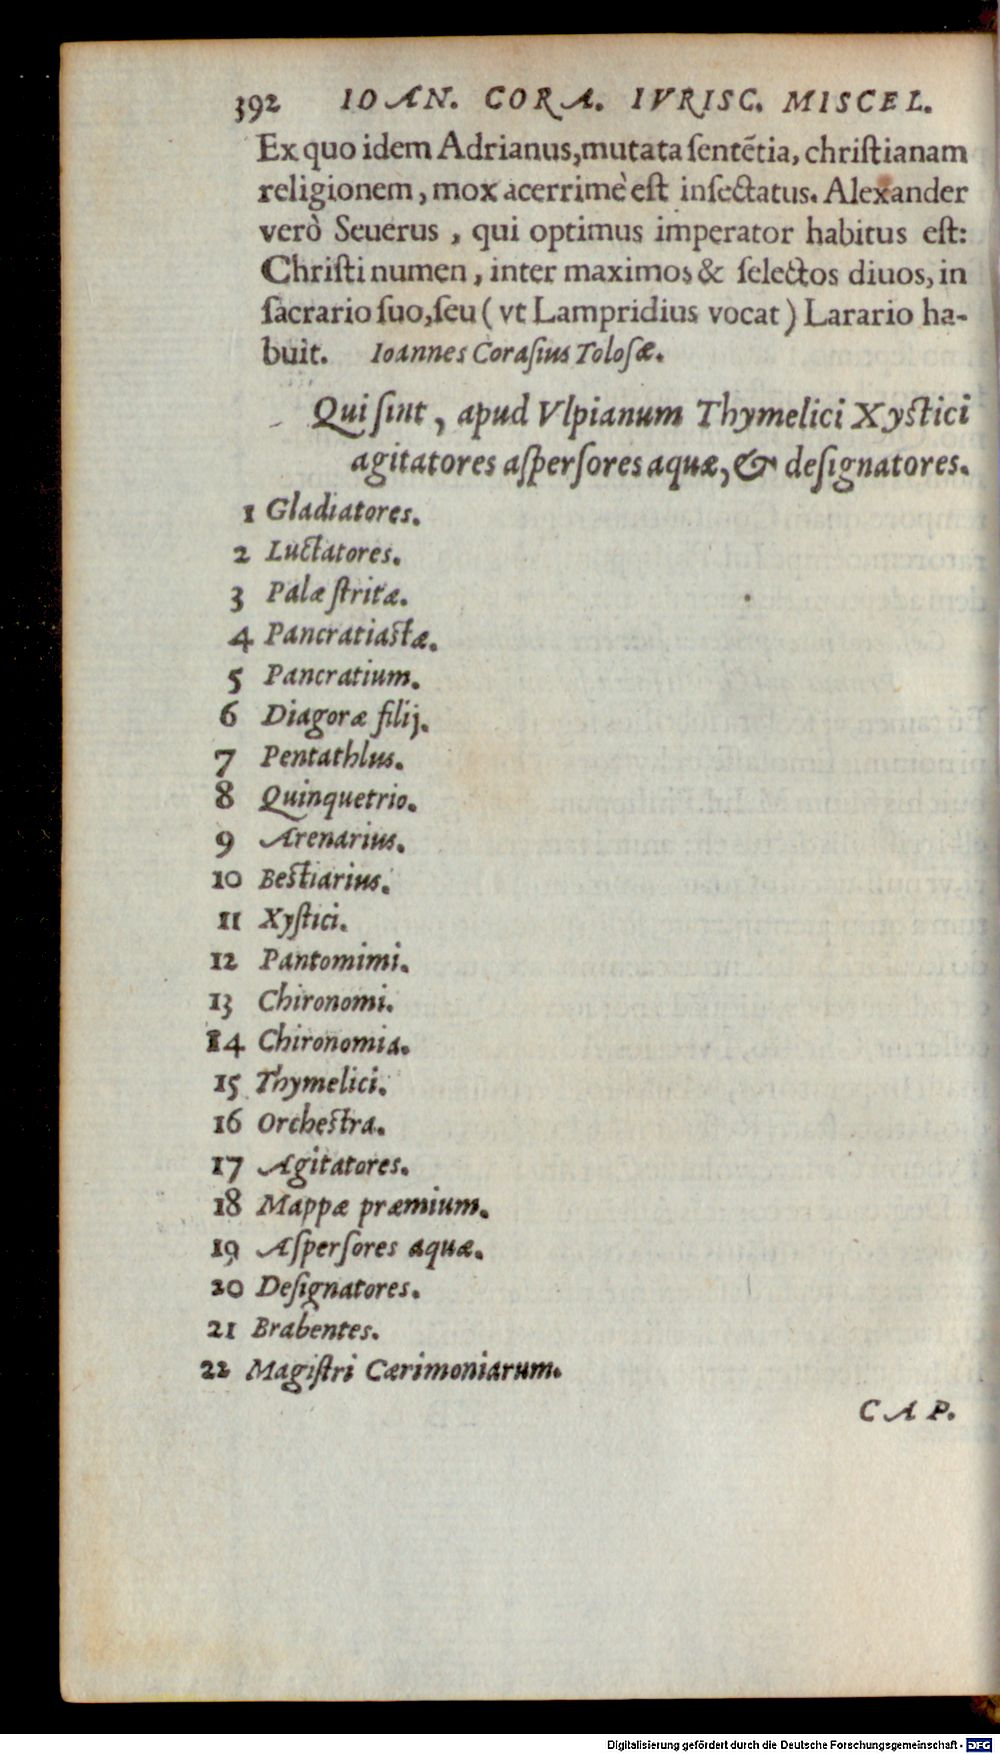 392 IOAN. CORA. IVRISC. MISCEL.
Ex quo idem Adrianus, mutata ſentẽtia, chriſtianam
religionem, mox acerrimè eſt inſectatus. Alexander
verò Seuerus, qui optimus imperator habitus eſt:
Chriſti numen, inter maximos & ſelectos diuos, in
ſacrario ſuo, ſeu (vt Lampridius vocat) Larario ha-
buit. Ioannes Coraſius Toloſæ.
Qui ſint, apud Vlpianum Thymelici Xyſtici
agitatores aſperſores aquæ, & deſignatores.
1 Gladiatores.
2 Luctatores.
3 Palæſtritæ.
4 Pancratiaſtæ.
5 Pancratium.
6 Diagoræ filij.
7 Pentathlus.
8 Quinquetrio.
9 Arenarius.
10 Beſtiarius.
11 Xyſtici.
12 Pantomimi.
13 Chironomi.
14 Chironomia.
15 Thymelici.
16 Orcheſtra.
17 Agitatores.
18 Mappæ præmium.
19 Aſperſores aquæ.
20 Deſignatores.
21 Brabentes.
22 Magiſtri Cærimoniarum.
CAP.
Digitalisierung gefördert durch die Deutsche Forschungsgemeinschaft - DFG